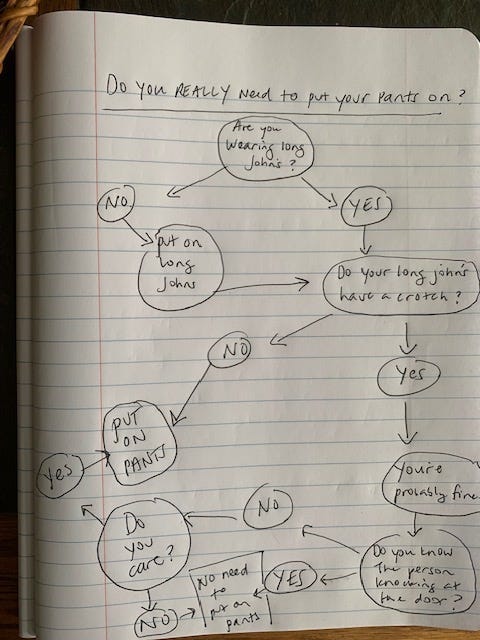 Do you REALLY Need to put your pants on?
Are you
wearing long
John's?
NO
YES
put on
long
Johns
Do your long john's
have a crotch?
NO
Yes
PUT
ON
PANTS
Yes
You're
probably fine
NO
Do
you
care?
Do you know
The person
knocking at
the door?
YES
No need
to
put on
pants
NO